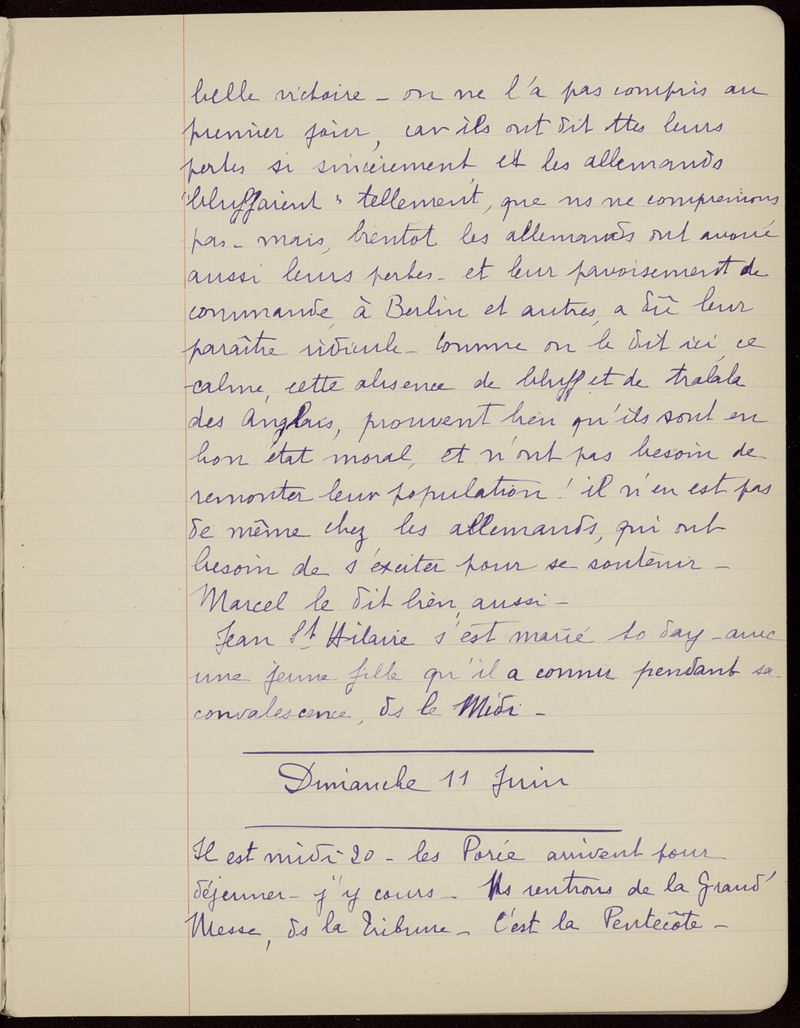 belle victoire – on ne l'a pas compris au
premier jour, car ils ont dit ttes leurs
pertes si sincèrement, et les allemands
"bluffaient" tellement, que ns ne comprenions
pas – mais, bientot les allemands ont avoué
aussi leurs pertes – et leur pavoisement de
commande, à Berlin et autres, a dû leur
paraître ridicule – Comme on le dit ici, ce
calme, cette absence de bluff et de tralala
des Anglais, prouvent bien qu'ils sont en
bon état moral, et n'ont pas besoin de
remonter leur population ! il n'en est pas
de même chez les allemands, qui ont
besoin de s'exciter pour se soutenir –
Marcel le dit bien, aussi –
Jean St Hilaire s'est marié to day – avec
une jeune fille qu'il a connu pendant sa
convalescence, ds le Midi –
Dimanche 11 Juin
Il est midi 20 – les Porée arrivent pour
déjeuner – j'y cours – Ns rentrons de la Grand'
Messe, ds la Tribune – C'est la Pentecôte –